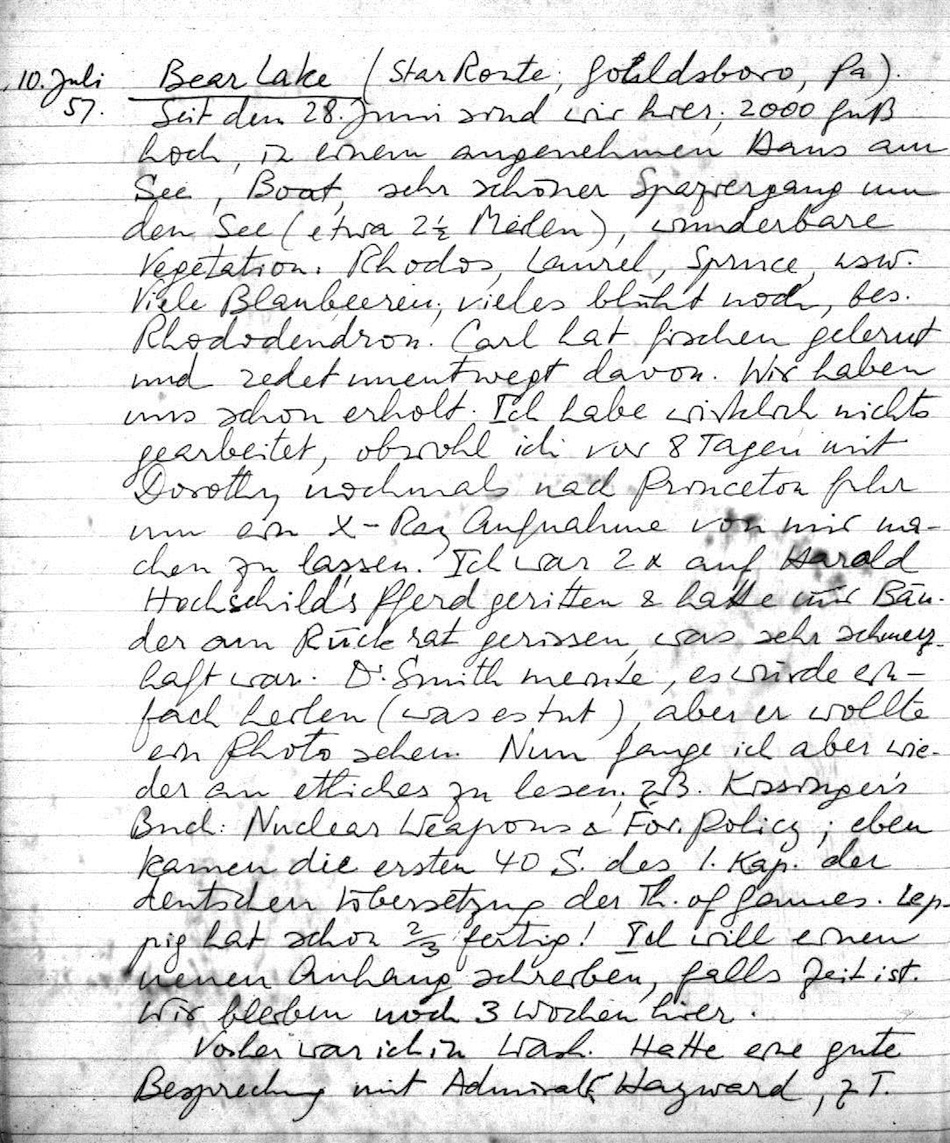 10. Juli 57. Bear Lake (Star Route, Gouldsboro, Pa).
Seit dem 28. Juni sind wir hier, 2000 Fuß
hoch, in einem angenehmen Haus am
See, Boot, sehr schöner Spaziergang um
den See (etwa 2½ Meilen), wunderbare
Vegetation. Rhodos, Laurel, Spruce, usw.
Viele Blaubeeren, vieles blüht noch, bes.
Rhododendron. Carl hat fischen gelernt
und redet unentwegt davon. Wir haben
uns schon erholt. Ich habe wirklich nichts
gearbeitet, obwohl ich vor 8 Tagen mit
Dorothy nochmals nach Princeton fuhr
um ein X-Ray Aufnahme von mir ma-
chen zu lassen. Ich war 2x auf Harold
Hochschilds Pferd geritten & hatte mir Bän-
der am Rückrat gerissen, was sehr schmerz-
haft war. Dr. Smith meinte, es würde ein-
fach heilen (was es tut), aber er wollte
ein Photo sehen. Nun fange ich aber wie-
der an etliches zu lesen, z.B. Kissinger's
Buch: Nuclear Weapons & For. Policy; eben
kamen die ersten 40 S. des 1. Kap. der
deutschen Übersetzung der Th. of Games. Lep-
pig hat schon 2/3 fertig! Ich will einen
neuen Anhang schreiben, falls Zeit ist.
Wir bleiben noch 3 Wochen hier.
Vorher war ich in Wash. Hatte eine gute
Besprechung mit Admiral Hayward, z.T.